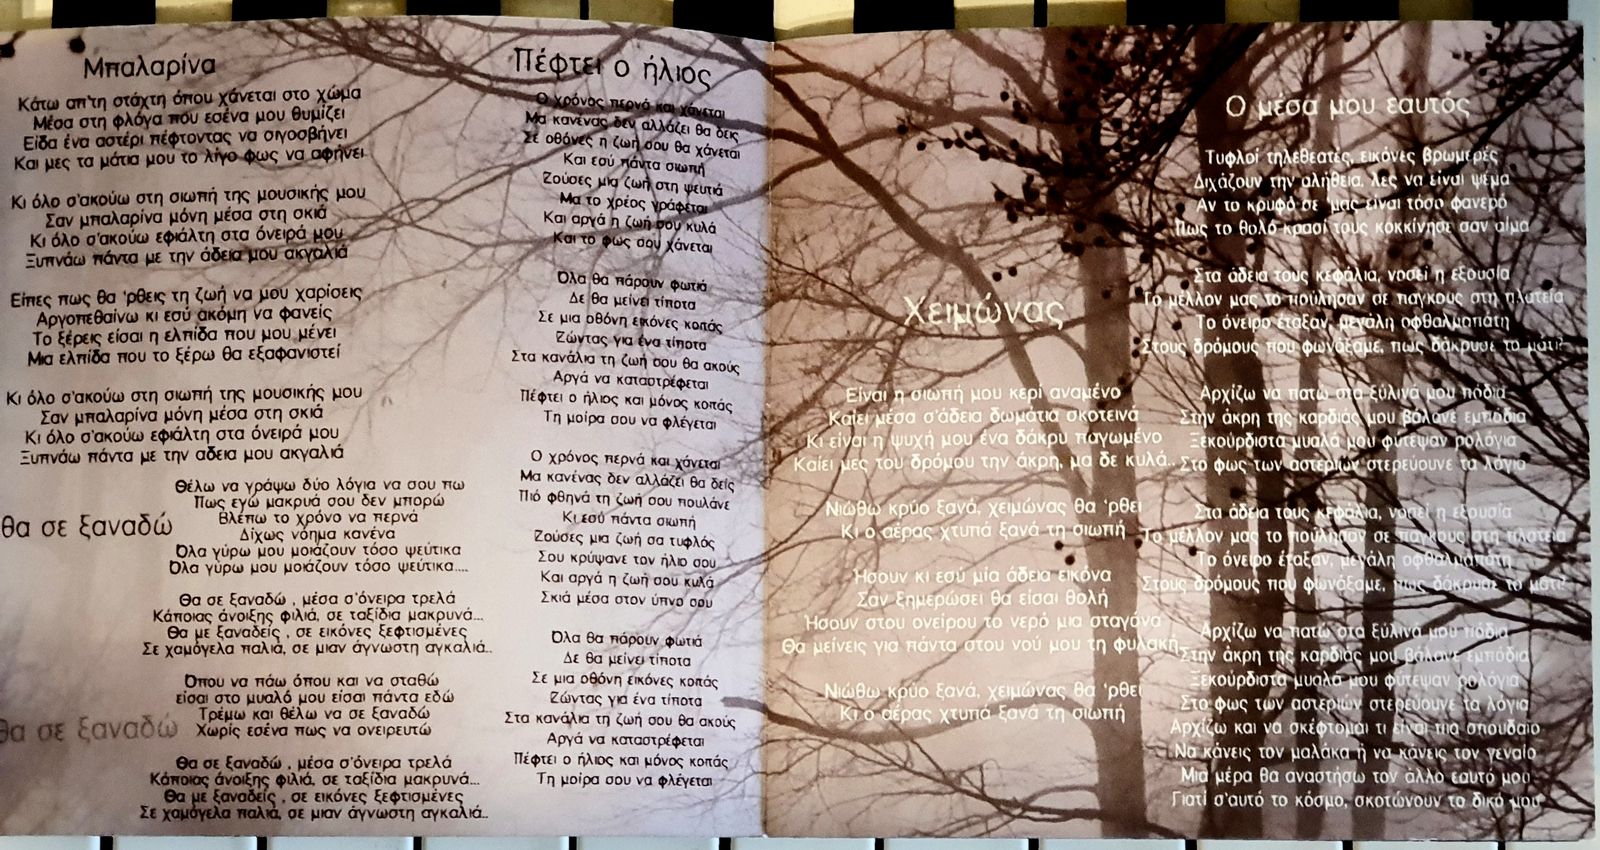 Μπαλαρίνα
Κάτω απ'τη στάχτη όπου χάνεται στο χώμα
Μέσα στη φλόγα που εσένα μου θυμίζει
Είδα ένα αστέρι πέφτοντας να σιγοσβήνει
Και μες τα μάτια μου το λίγο φως να αφήνει
Κι όλο σ'ακούω στη σιωπή της μουσικής μου
Σαν μπαλαρίνα μόνη μέσα στη σκιά
Κι όλο σ'ακούω εφιάλτη στα όνειρά μου
Ξυπνάω πάντα με την άδεια μου ακγαλιά
Είπες πως θα 'ρθεις τη ζωή να μου χαρίσεις
Αργοπεθαίνω κι εσύ ακόμη να φανείς
Το ξέρεις είσαι η ελπίδα που μου μένει
Μια ελπίδα που το ξέρω θα εξαφανιστεί
Κι όλο σ'ακούω στη σιωπή της μουσικής μου
Σαν μπαλαρίνα μόνη μέσα στη σκιά
Κι όλο σ'ακούω εφιάλτη στα όνειρά μου
Ξυπνάω πάντα με την αδεια μου ακγαλιά
θα σε ξαναδώ
Θέλω να γράψω δύο λόγια να σου πω
Πως εγώ μακρυά σου δεν μπορώ
Βλέπω το χρόνο να περνά
Δίχως νόημα κανένα
Όλα γύρω μου μοιάζουν τόσο ψεύτικα
Όλα γύρω μου μοιάζουν τόσο ψεύτικα....
Θα σε ξαναδώ , μέσα σ'όνειρα τρελά
Κάποιας άνοιξης φιλιά, σε ταξίδια μακρυνά...
Θα με ξαναδείς , σε εικόνες ξεφτισμένες
Σε χαμόγελα παλιά, σε μιαν άγνωστη αγκαλιά..
θα σε ξαναδώ
Όπου να πάω όπου και να σταθώ
είσαι στο μυαλό μου είσαι πάντα εδώ
Τρέμω και θέλω να σε ξαναδώ
Χωρίς εσένα πως να ονειρευτώ
Θα σε ξαναδώ , μέσα σ'όνειρα τρελά
Κάποιας άνοιξης φιλιά, σε ταξίδια μακρυνά...
Θα με ξαναδείς , σε εικόνες ξεφτισμένες
Σε χαμόγελα παλιά, σε μιαν άγνωστη αγκαλιά..
Πέφτει ο ήλιος
Ο χρόνος περνά και χάνεται
Μα κανένας δεν αλλάζει θα δεις
Σε οθόνες η ζωή σου θα χάνεται
Και εσύ πάντα σιωπή
Ζούσες μια ζωή στη ψευτιά
Μα το χρέος γράφεται
Και αργά η ζωή σου κυλά
Και το φως σου χάνεται
Όλα θα πάρουν φωτιά
Δε θα μείνει τίποτα
Σε μια οθόνη εικόνες κοπάς
Ζώντας για ένα τίποτα
Στα κανάλια τη ζωή σου θα ακούς
Αργά να καταστρέφεται
Πέφτει ο ήλιος και μόνος κοπάς
Τη μοίρα σου να φλέγεται
Ο χρόνος περνά και χάνεται
Μα κανένας δεν αλλάζει θα δείς
Πιό φθηνά τη ζωή σου πουλάνε
Κι εσύ πάντα σιωπή
Ζούσες μια ζωή σα τυφλός
Σου κρύψανε τον ήλιο σου
Και αργά η ζωή σου κυλά
Σκιά μέσα στον ύπνο σου
Όλα θα πάρουν φωτιά
Δε θα μείνει τίποτα
Σε μια οθόνη εικόνες κοπάς
Ζώντας για ένα τίποτα
Στα κανάλια τη ζωή σου θα ακούς
Αργά να καταστρέφεται
Πέφτει ο ήλιος και μόνος κοπάς
Τη μοίρα σου να φλέγεται
Χειμώνας
Είναι η σιωπή μου κερί αναμένο
Καίει μέσα σ'άδεια δωμάτια σκοτεινά
Κι είναι η ψυχή μου ένα δάκρυ παγωμένο
Καίει μες του δρόμου την άκρη, μα δε κυλά..
Νιώθω κρύο ξανά, χειμώνας θα 'ρθει
Κι ο αέρας χτυπά ξανά τη σιωπή
Ήσουν κι εσύ μία άδεια εικόνα
Σαν ξημερώσει θα είσαι θολή
Ήσουν στου ονείρου το νερό μια σταγόνα
Θα μείνεις για πάντα στου νού μου τη φυλακή
Νιώθω κρύο ξανά, χειμώνας θα 'ρθει
Κι ο αέρας χτυπά ξανά τη σιωπή
Ο μέσα μου εαυτός
Τυφλοί τηλεθεατές, εικόνες βρωμερές
Διχάζουν την αλήθεια, λες να είναι ψέμα
Αν το κρυφό σε 'μας είναι τόσο φανερό
Πως το θολό κρασί τους κοκκίνησε σαν αίμα
Στα άδεια τους κεφάλια, νοσεί η εξουσία
Το μέλλον μας το πούλησαν σε παγκους στη πλατεία
Το όνειρο έταξαν, μεγάλη οφθαλμαπάτη
Στους δρόμους που φωνάξαμε, πως δάκρυσε το μάτι!
Αρχίζω να πατώ στα ξύλινά μου πόδια
Στην άκρη της καρδιάς μου βάλανε εμπόδια
Ξεκούρδιστα μυαλά μου φύτεψαν ρολόγια
Στο φως των αστεριών στερεύουνε τα λόγια
Στα άδεια τους κεφάλια, νοσεί η εξουσία
Το μέλλον μας το πούλησαν σε παγκους στη πλατεία
Το όνειρο έταξαν, μεγάλη οφθαλμαπάτη
Στους δρόμους που φωνάξαμε, πως δάκρυσε το μάτι!
Αρχίζω να πατώ στα ξύλινά μου πόδια
Στην άκρη της καρδιάς μου βάλανε εμπόδια
Ξεκούρδιστα μυαλά μου φύτεψαν ρολόγια
Στο φως των αστεριών στερεύουνε τα λόγια
Αρχίζω και να σκέφτομαι τι είναι πια σπουδαίο
Να κάνεις τον μαλάκα ή να κάνεις τον γενναίο
Μια μέρα θα αναστήσω τον άλλο εαυτό μου
Γιατί σ'αυτό το κόσμο, σκοτώνουν το δικό μου